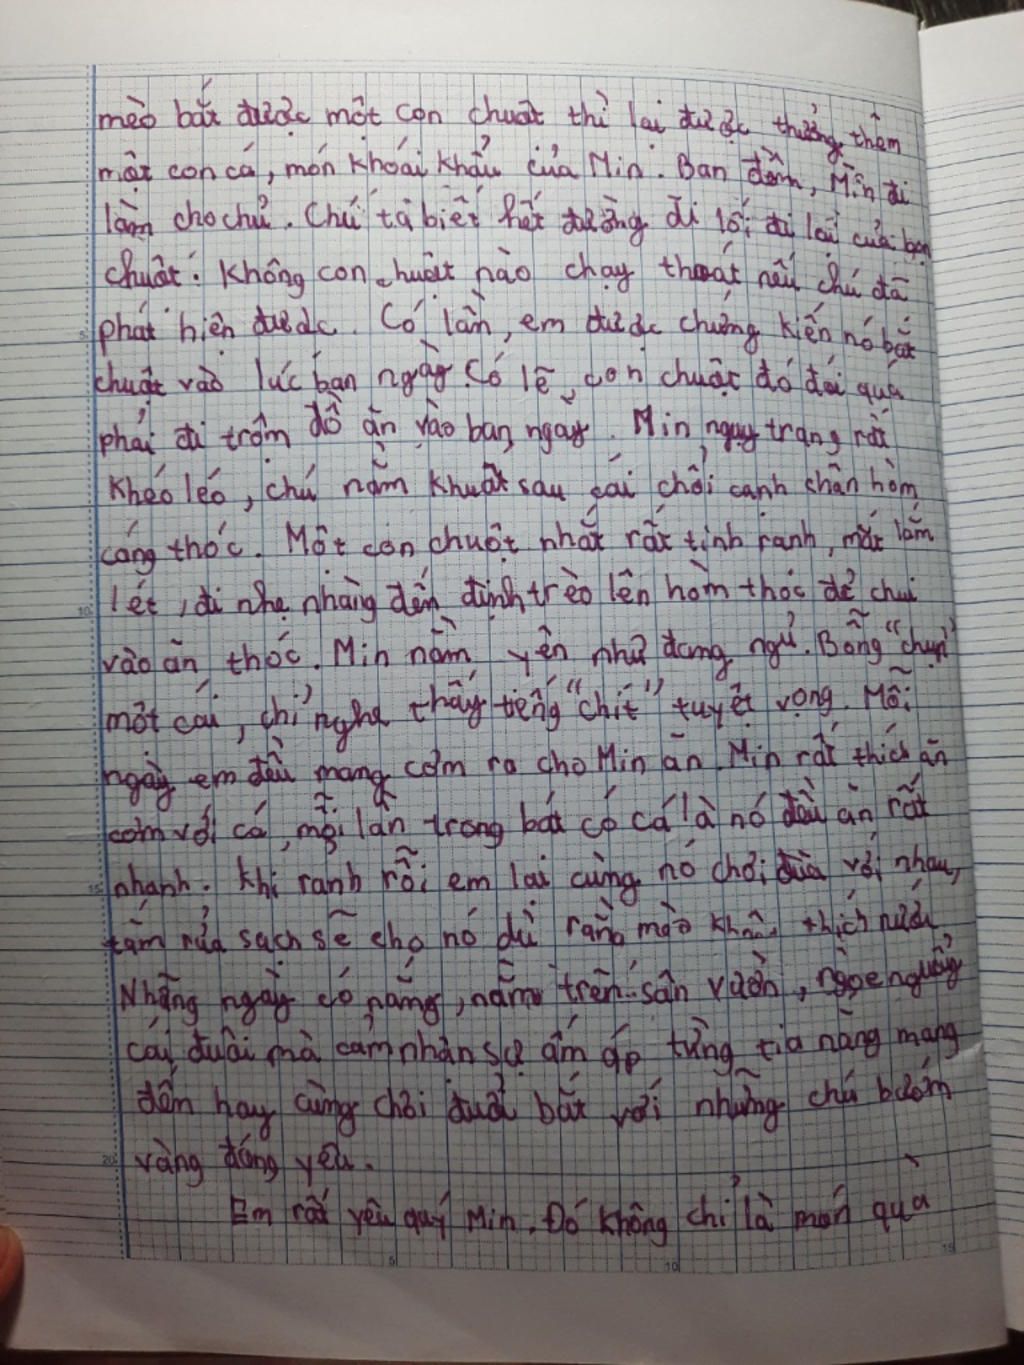 mèo bắt được một con chuột thì lại được thưởng thêm
một con cá, món khoái khẩu của Min. Ban đêm, Min đi
làm cho chủ. Chú ta biết hết đường đi lối đi lại của bọn
chuột. Không con chuột nào chạy thoát nếu chú đã
phát hiện được. Có lần, em được chứng kiến nó bắt
chuột vào lúc ban ngày. Có lẽ, con chuột đó đói quá
phải đi trộm đồ ăn vào ban ngay. Min nguy trang rất
khéo léo, chú nằm khuất sau cái chổi cạnh chân hòm
cáng thóc. Một con chuột nhắt rất tinh ranh, mắt lấm
lét, đi nhẹ nhàng đến định trèo lên hòm thóc để chui
vào ăn thóc. Min nằm yên như đang ngủ. Bỗng "chụp"
một cái, chỉ nghe thấy tiếng "chít" tuyệt vọng. Mỗi
ngày em đều mang cơm ra cho Min ăn. Min rất thích ăn
cơm với cá, mỗi lần trong bát có cá là nó đều ăn rất
nhanh. Khi rảnh rỗi em lại cùng nó chơi đùa với nhau,
tắm rửa sạch sẽ cho nó dù rằng mèo không thích nước
Những ngày có nắng, nằm trên sân vườn, ngoe nguẩy
cái đuôi mà cảm nhận sự ấm áp từng tia nắng mang
đến hay cùng chơi đuổi bắt với những chú bướm
vàng đáng yêu.
Em rất yêu quý Min. Đó không chỉ là món quà